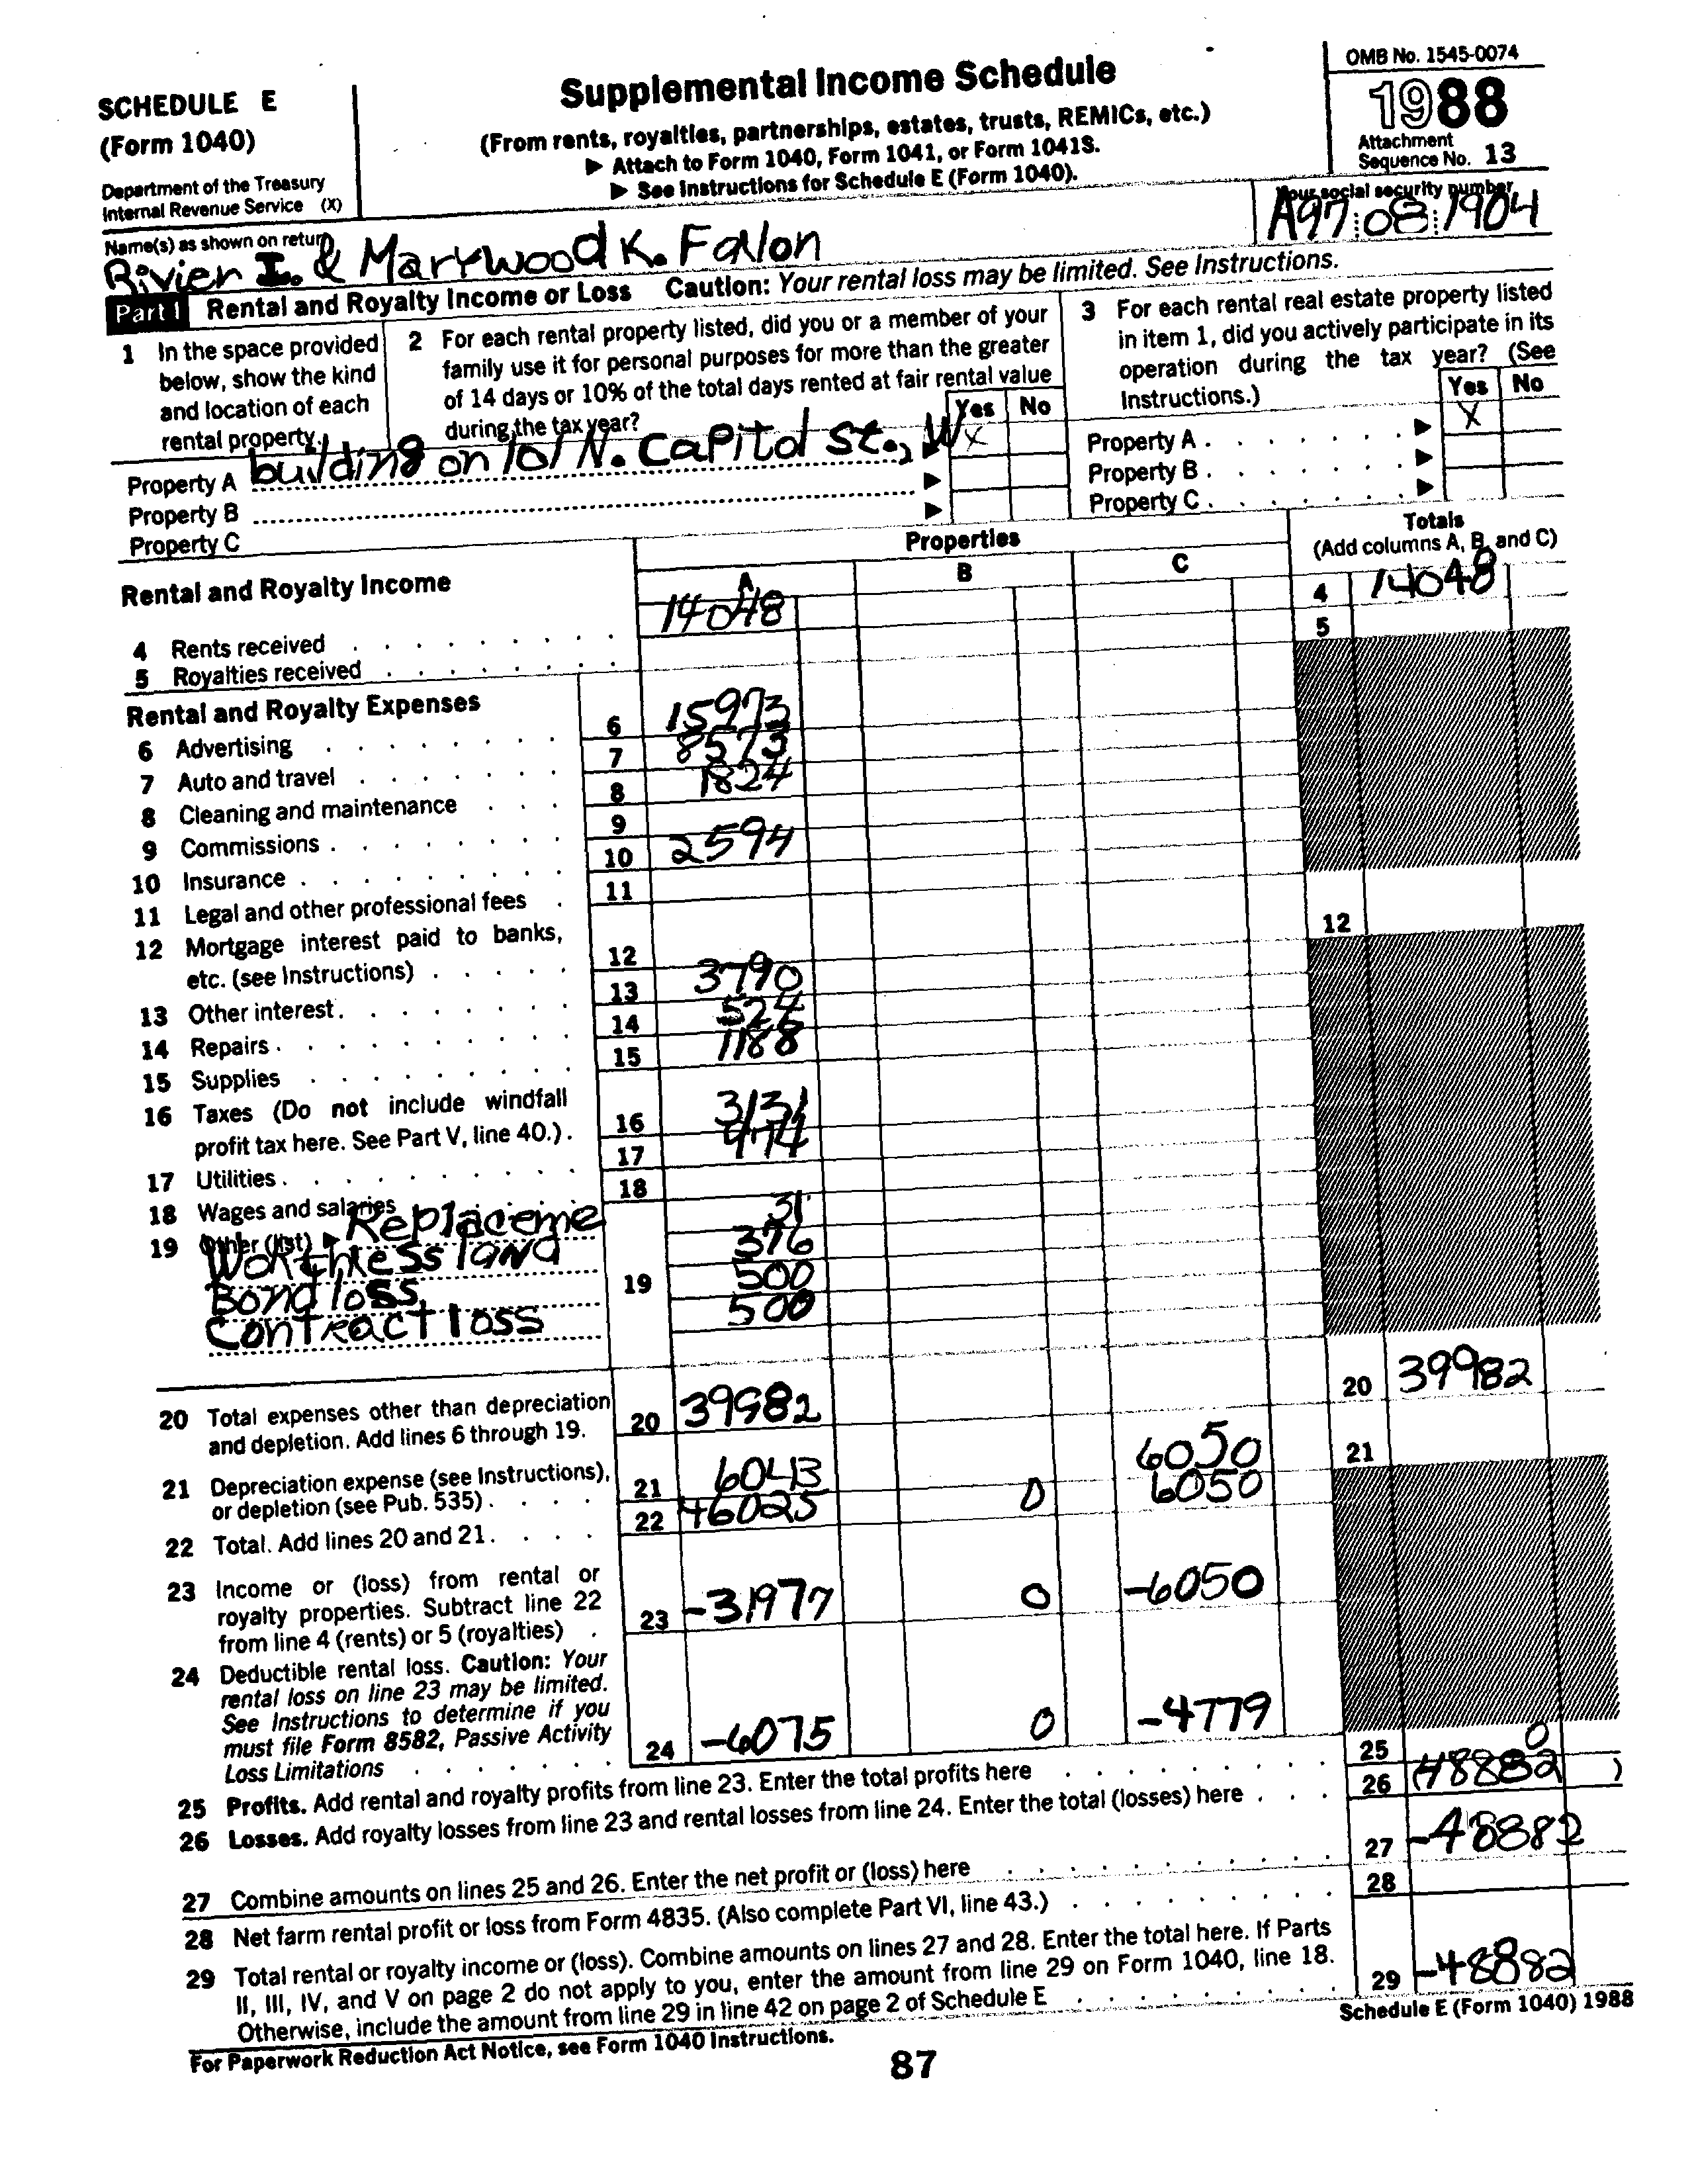 SCHEDULE E
(Form 1040)
Department of the Treasury
Internal Revenue Service (X)
Supplemental Income Schedule
(From rents, royalties, partnerships, estates, trusts, REMICs, etc.)
▶ Attach to Form 1040, Form 1041, or Form 1041S.
▶ See Instructions for Schedule E (Form 1040).
OMB No. 1545-0074
1988
Attachment
Sequence No. 13
Name(s) as shown on return
Rivier I. & Marywood K. Fallon
Your social security number
A97 08 1904
Part I Rental and Royalty Income or Loss Caution: Your rental loss may be limited. See Instructions.
1 In the space provided
below, show the kind
and location of each
rental property.
2 For each rental property listed, did you or a member of your
family use it for personal purposes for more than the greater
of 14 days or 10% of the total days rented at fair rental value
during the tax year?
Yes No
3 For each rental real estate property listed
in item 1, did you actively participate in its
operation during the tax year? (See
Instructions.)
Yes No
Property A building on 101 N. Capitol St., W ▶ X
Property B ▶
Property C ▶
Property A . . . . . . . ▶ X
Property B . . . . . . . ▶
Property C . . . . . . . ▶
Rental and Royalty Income
Properties
A B C
Totals
(Add columns A, B, and C)
4 Rents received 14048 4 14048
5 Royalties received 5
Rental and Royalty Expenses
6 Advertising 6 15973
7 Auto and travel 7 8573
8 Cleaning and maintenance 8 1824
9 Commissions 9
10 Insurance 10 2594
11 Legal and other professional fees 11
12 Mortgage interest paid to banks,
etc. (see Instructions) 12 12
13 Other interest 13 3790
14 Repairs 14 524
15 Supplies 15 1188
16 Taxes (Do not include windfall
profit tax here. See Part V, line 40.) 16 3131
17 Utilities 17 974
18 Wages and salaries 18
19 Other (list) ▶ Replaceme 31
Worthless land 376
Bond loss 19 500
Contract loss 500
20 Total expenses other than depreciation
and depletion. Add lines 6 through 19. 20 39982 20 39982
21 Depreciation expense (see Instructions),
or depletion (see Pub. 535) 21 6043 6050 21
22 Total. Add lines 20 and 21 22 46025 0 6050
23 Income or (loss) from rental or
royalty properties. Subtract line 22
from line 4 (rents) or 5 (royalties) 23 -31977 0 -6050
24 Deductible rental loss. Caution: Your
rental loss on line 23 may be limited.
See Instructions to determine if you
must file Form 8582, Passive Activity
Loss Limitations 24 -6075 0 -4779
25 Profits. Add rental and royalty profits from line 23. Enter the total profits here 25 0
26 Losses. Add royalty losses from line 23 and rental losses from line 24. Enter the total (losses) here 26 (48882 )
27 Combine amounts on lines 25 and 26. Enter the net profit or (loss) here 27 -48882
28 Net farm rental profit or loss from Form 4835. (Also complete Part VI, line 43.) 28
29 Total rental or royalty income or (loss). Combine amounts on lines 27 and 28. Enter the total here. If Parts
II, III, IV, and V on page 2 do not apply to you, enter the amount from line 29 on Form 1040, line 18.
Otherwise, include the amount from line 29 in line 42 on page 2 of Schedule E 29 -48882
For Paperwork Reduction Act Notice, see Form 1040 Instructions.
Schedule E (Form 1040) 1988
87